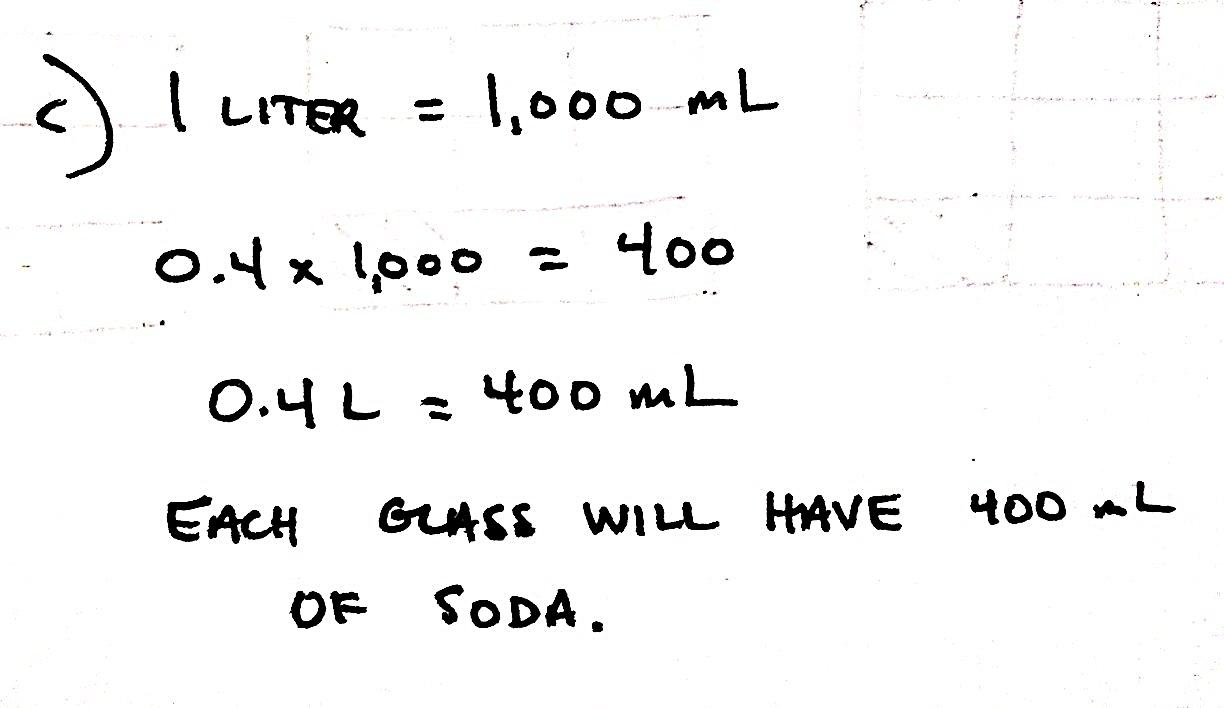 c) 1 LITER = 1,000 mL
0.4 x 1,000 = 400
0.4 L = 400 mL
EACH GLASS WILL HAVE 400 mL
OF SODA.